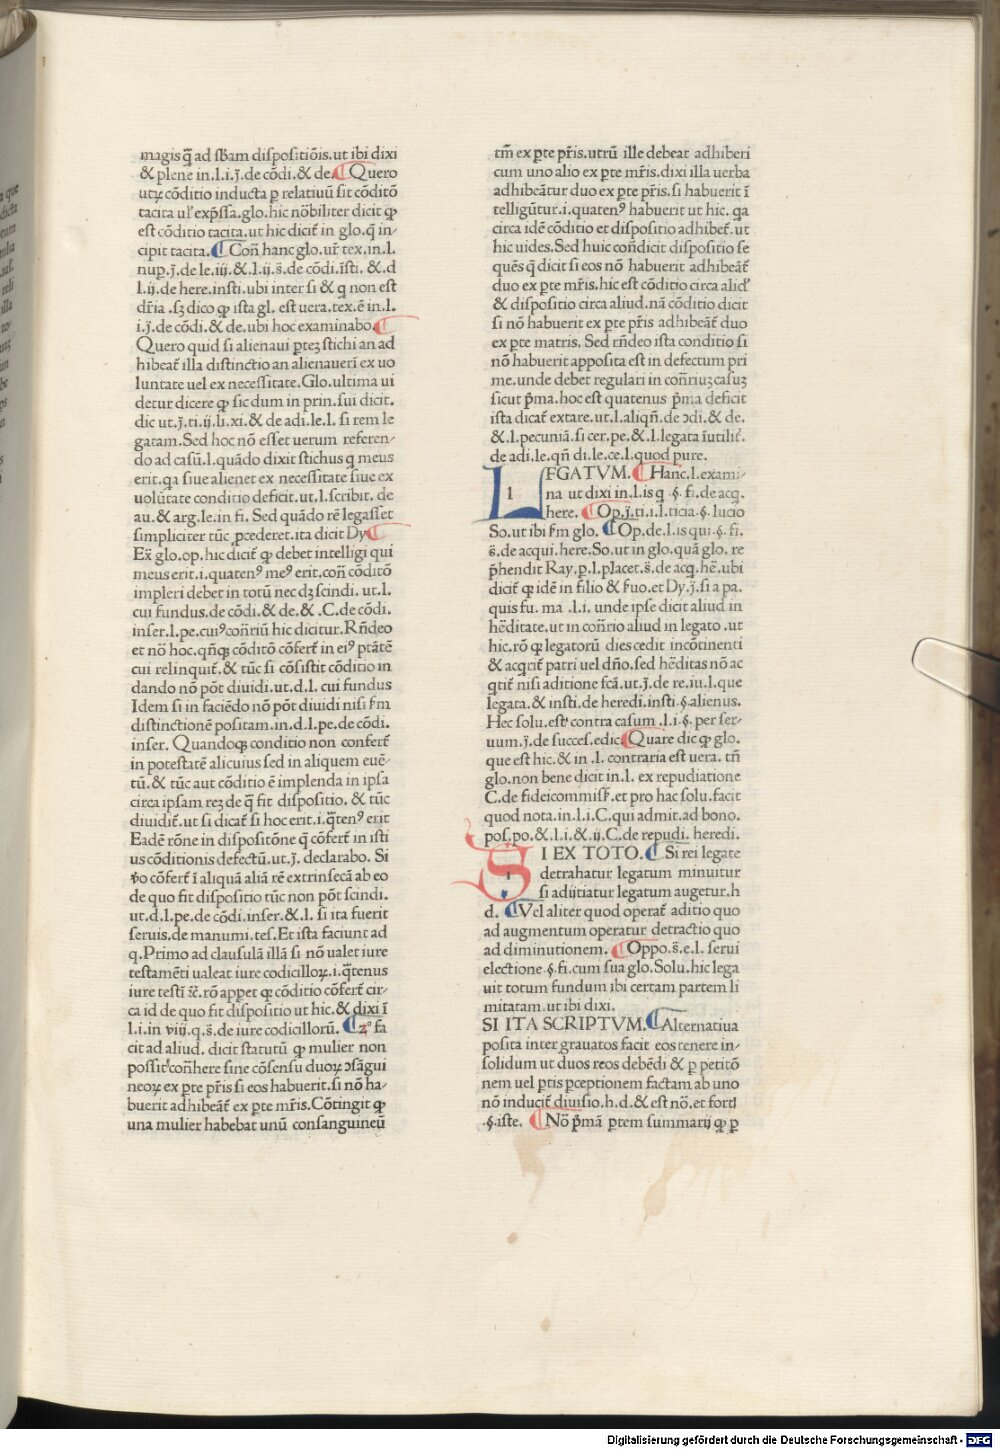 magis q̃ ad sƀam dispositiõis.ut ibi dixi
& plene in.l.i.j̃.de cõdi.& de.¶Quero
utꝝ cõditio inducta ꝑ relatiuũ sit cõditõ
tacita uł exp̃ssa.glo.hic nõbiliter dicit ꝙ
est cõditio tacita.ut hic dicit̃ in glo.q̃ in-
cipit tacita.¶Coñ hanc glo.ur̃ tex.in.l.
nup.j̃.de le.iij.&.l.ij.s̃.de cõdi.ĩsti. &.d
l.ij.de here.insti.ubi inter si & q non est
dr̃ia .sꝫ dico ꝙ ista gl. est uera.tex.ẽ in.l.
i.j̃.de cõdi.& de.ubi hoc examinabo.¶
Quero quid si alienaui p̱teꝫ stichi an ad
hibeat̃ illa distinctio an alienauerĩ ex uo
luntate uel ex necessitate.Glo.ultima ui
detur dicere ꝙ sic dum in prin. sui dicit.
dic ut.j̃.ti.ij.li.xi.& de adi.le.l. si rem le
gatam.Sed hoc nõ esset uerum referen-
do ad casũ.l.quãdo dixit stichus q meus
erit.qa siue alienet ex necessitate siue ex
uolũtate conditio deficit.ut.l.scribit. de
au.& arg.le.in fi. Sed quãdo rẽ legasset
simpliciter tũc ꝓcederet.ita dicit Dy.¶
Ex̃ glo.op.hic dicit̃ ꝙ debet intelligi qui
meus erit.i.quatenꝰ meꝰ erit.coñ cõditõ
impleri debet in totũ nec dꝫ scindi. ut.l.
cui fundus.de cõdi.& de.& .C.de cõdi.
inser.l.pe.cuiꝰ coñriũ hic dicitur.Rñdeo
et nõ hoc.qñqꝫ cõditõ cõfert̃ in eiꝰ ptãtẽ
cui relinquit̃.& tũc si cõsistit cõditio in
dando nõ põt diuidi.ut.d.l. cui fundus
Idem si in faciẽdo nõ põt diuidi nisi fm
distinctionẽ positam.in.d.l.pe.de cõdi.
inser. Quandoqꝫ conditio non confert̃
in potestatẽ alicuius sed in aliquem euẽ-
tũ.& tũc aut cõditio ẽ implenda in ipsa
circa ipsam reꝫ de q̃ fit dispositio. & tũc
diuidit̃.ut si dicat̃ si hoc erit.i.q̃tenꝰ erit
Eadẽ rõne in dispositõne q̃ cõfert̃ in isti
us cõditionis defectũ.ut.j̃. declarabo. Si
v̊o cõfert̃ ĩ aliquã aliã rẽ extrinsecã ab eo
de quo fit dispositio tũc non põt scindi.
ut.d.l.pe.de cõdi.inser.&.l. si ita fuerit
seruis.de manumi.tes.Et ista faciunt ad
q.Primo ad clausulã illã si nõ ualet iure
testamẽti ualeat iure codicilloꝝ.i.q̃tenus
iure testĩ ⁊c̃.rõ apꝑet qꝫ cõditio cõfert̃ cir-
ca id de quo fit dispositio ut hic.& dixi ĩ
l.i.in viij.q.s̃.de iure codicillorũ. ¶2° fa
cit ad aliud. dicit statutũ ꝙ mulier non
possit coñhere sine cõsensu duoꝝ ꝯsãgui
neoꝝ ex ꝑte pr̃is si eos habuerit.si nõ ha-
buerit adhibeat̃ ex ꝑte mr̃is.Cõtingit ꝙ
una mulier habebat unũ consanguineũ
tm̃ ex ꝑte pr̃is.utrũ ille debeat adhiberi
cum uno alio ex ꝑte mr̃is.dixi illa uerba
adhibeãtur duo ex ꝑte pr̃is.si habuerit ĩ
telligũtur.i.quatenꝰ habuerit ut hic. qa
circa idẽ cõditio et dispositio adhibet̃. ut
hic uides.Sed huic coñdicit dispositio se
quẽs q̃ dicit si eos nõ habuerit adhibeãt̃
duo ex ꝑte mr̃is.hic est cõditio circa alid̕
& dispositio circa aliud.nã cõditio dicit
si nõ habuerit ex ꝑte pr̃is adhibeãt̃ duo
ex ꝑte matris. Sed rñdeo ista conditio si
nõ habuerit apposita est in defectum pri
me.unde debet regulari in coñriuꝫ casuꝫ
sicut p̃ma.hoc est quatenus p̃ma deficit
ista dicat̃ extare.ut.l.aliqñ.de ꝯdi.& de.
&.l.pecuniã.si cer.pe.&.l.legata ĩutilit̃.
de adi.le.qñ di.le.ce.l.quod pure.
LEGATVM.¶Hanc.l.exami-
na ut dixi in.l.is q .§. fi.de acq.
here. ¶Op.j̃.ti.i.l.ticia.§. lucio
So.ut ibi fm glo. ¶Op.de.l.is qui.§. fi.
s̃.de acqui.here.So.ut in glo.quã glo. re
p̃hendit Ray.p.l.placet.s̃.de acq.hẽ.ubi
dicit̃ ꝙ idẽ in filio & ẜuo.et Dy.j̃.si a pa.
quis fu. ma .l.i. unde ipse dicit aliud in
hẽditate.ut in coñrio aliud in legato .ut
hic.rõ qꝫ legatorũ dies cedit incõtinenti
& acqrit̃ patri uel dño.sed hẽditas nõ ac
qrit̃ nisi aditione fcã.ut.j̃.de re.iu.l.que
legata.& insti.de heredi.insti.§.alienus.
Hec solu.est contra casum .l.i.§. per ser-
uum.j̃.de succes.edic.¶Quare dic ꝙ glo.
que est hic.& in .l. contraria est uera. tñ
glo.non bene dicit in.l. ex repudiatione
C.de fideicommiss̃.et pro hac solu.facit
quod nota.in.l.i.C.qui admit.ad bono.
pos.po.&.l.i.& .ij.C.de repudi. heredi.
SI EX TOTO.¶Si rei legate
detrahatur legatum minuitur
si adijtiatur legatum augetur.h
d. ¶Vel aliter quod operat̃ aditio quo
ad augmentum operatur detractio quo
ad diminutionem. ¶Oppo.s̃.e.l. serui
electione.§.fi.cum sua glo.Solu.hic lega
uit totum fundum ibi certam partem li
mitatam.ut ibi dixi.
SI ITA SCRIPTVM.¶Alternatiua
posita inter grauatos facit eos tenere in-
solidum ut duos reos debẽdi & ꝑ petitõ
nem uel ꝑtis ꝑceptionem factam ab uno
nõ inducit̃ diuisio.h.d.& est nõ.et forti
.§.iste. ¶Nõ p̃mã ꝑtem summarij ꝙ ꝑ
Digitalisierung gefördert durch die Deutsche Forschungsgemeinschaft - DFG